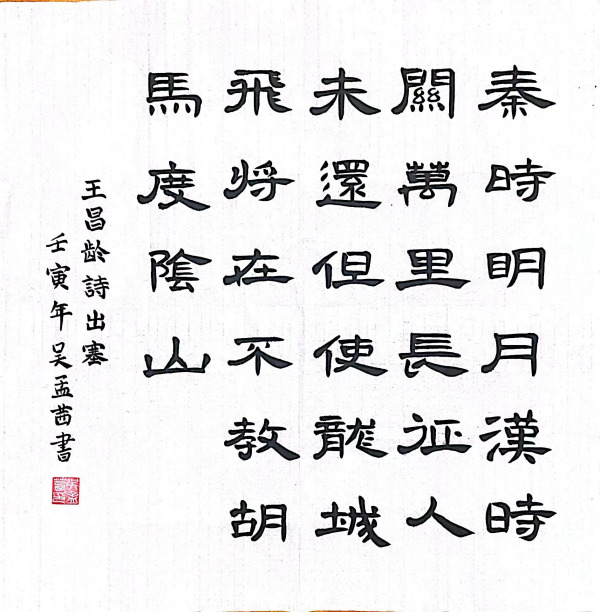 秦時明月漢時
關萬里長征人
未還但使龍城
飛将在不教胡
馬度陰山
王昌龄詩出塞
壬寅年吴孟茜書